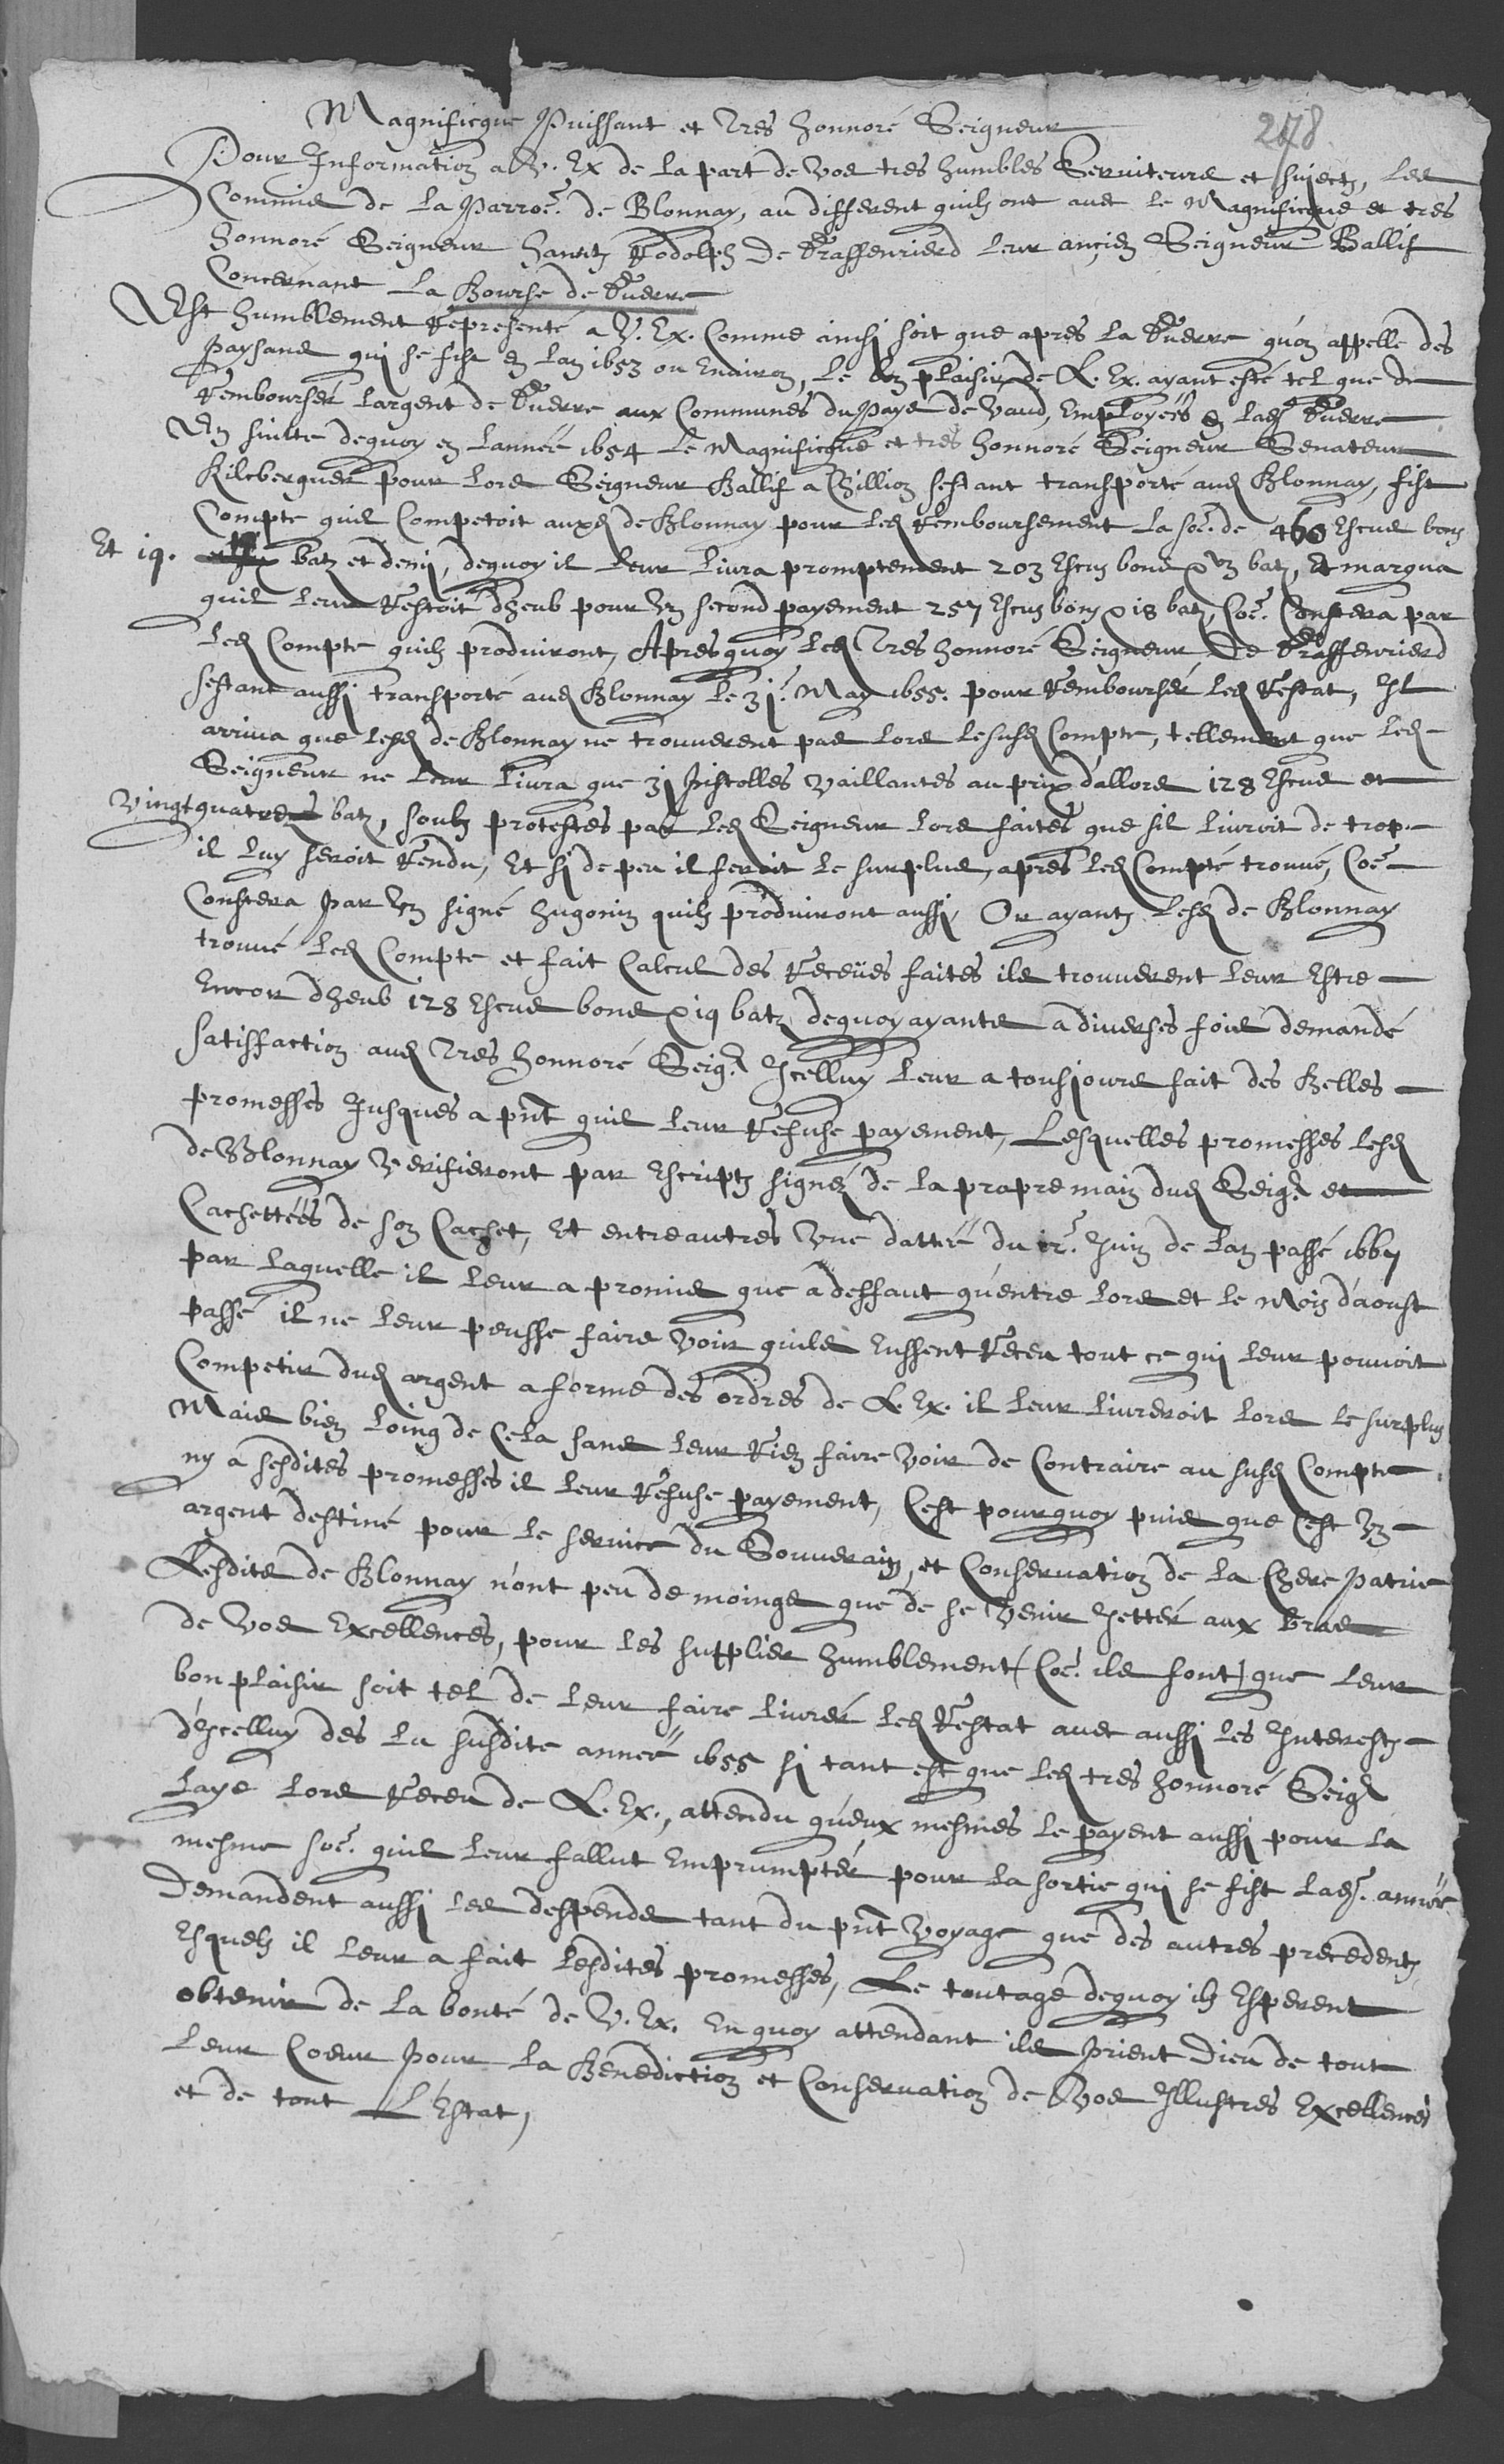 Magnificque Puissant et Tres honnoré Seigneur
278
Pour Information a V. Ex de la part de vos tres humbles Serviteurs et sujects, les
Commis de la Parroe. de Blonnay, au different quilz ont avec le Magnificque et tres
honnoré Seigneur Hantz Rodolph de Graffenrierd leur ancien Seigneur Ballif
Concernant La Bourse de Guerre
Est humblement Representé a V. Ex. Comme ainsi soit que apres la Guerre qu'on appelle des
Paysans qui se fist en lan 1653 ou environ, le bon plaisir de L. Ex. ayant esté tel que de
Rembourser largent de Guerre aux Communes du Pays de Vaud, Employées en lad. Guerre
En suitte dequoy en lannée 1654 Le Magnificque et tres honnoré Seigneur Senateur
Kilcberguer pour lors Seigneur Ballif a Chillion sestant transporté aud Blonnay, fist
Compte quil Competoit auxd de Blonnay pour led Remboursement la soe. de 460 Escus bons
Et 19. batz et demj, dequoy il leur livra promptement 203 Escus bons & un batz, Et marqua
quil leur Restoit dheub pour un second payement 257 Escus bons & 18 batz, Coe. Constera par
led Compte quilz produiront, Apres quoy led Tres honnoré Seigneur de Graffenrierd
sestant aussi transporté aud Blonnay le 3j. May 1655. pour Rembourser led Restat, Il
arriva que lesd de Blonnay ne trouverent pas lors le susd Compte, tellement que led
Seigneur ne leur livra que 3j Pistolles vaillantes au prix dallors 128 Escus et
vingtquatre batz, soubz protestes par led Seigneur lors faites que sil livroit de trop
il luy seroit Rendu, Et si de peu il feroit le surplus, apres led Compte trouvé, Coe
Constera par un signé Hugonin quilz produiront aussi, Or ayantz lesd de Blonnay
trouvé led Compte et fait Calcul des Receües faites ils trouverent leur Estre
Encor dheub 128 Escus bons & 19 batz dequoy ayants a diverses fois demandé
Satisfaction aud Tres honnoré Seigr. Icelluy leur a tousjours fait des Belles
promesses Jusques a pnt quil leur Refuse payement, Lesquelles promesses lesd
de Blonnay Verifieront par Escriptz signéz de la propre main dud Seigr. et
Cachettées de son Cachet, Et entre autres Une dattée du Juin de lan passé 1667
par laquelle il leur a promis que a deffaut quentre lors et le mois daoust
passé il ne leur peusse faire voir quils Eussent Receu tout ce qui leur pouvoit
Competir dud argent a forme des ordres de L. Ex. il leur livreroit lors le surplus
Mais bien loing de Cela sans leur Rien faire voir de Contraire au susd Compte
ny a sesdites promesses il leur Refuse payement, Cest pourquoy puis que Cest un
argent destiné pour le service du Souverain, et Conservation de la Chere Patrie
Lesdits de Blonnay n'ont peu de moings que de se venir Jetter aux bras
de Vos Excellences, pour les supplier humblement (Coe. ils font) que leur
bon plaisir soit tel de leur faire livrer led Restat avec aussi les Interestz
d'Icelluy des la susdite année 1655 si tant est que led tres honnoré Seigr
laye lors Receu de L. Ex., attendu qu'eux mesmes le payent aussi pour la
mesme soe. quil leur fallut Emprumpter pour la sortie qui se fist lad. année
Demandent aussi les despends tant du pnt voyage que des autres precedentz,
Esquelz il leur a fait lesdites promesses, Le toutage dequoy ilz Esperent
obtenir de la bonté de V. Ex. En quoy attendant ils prient Dieu de tout
leur Coeur pour la Benediction et Conservation de Vos Illustres Excellences
et de tout L'Estat,